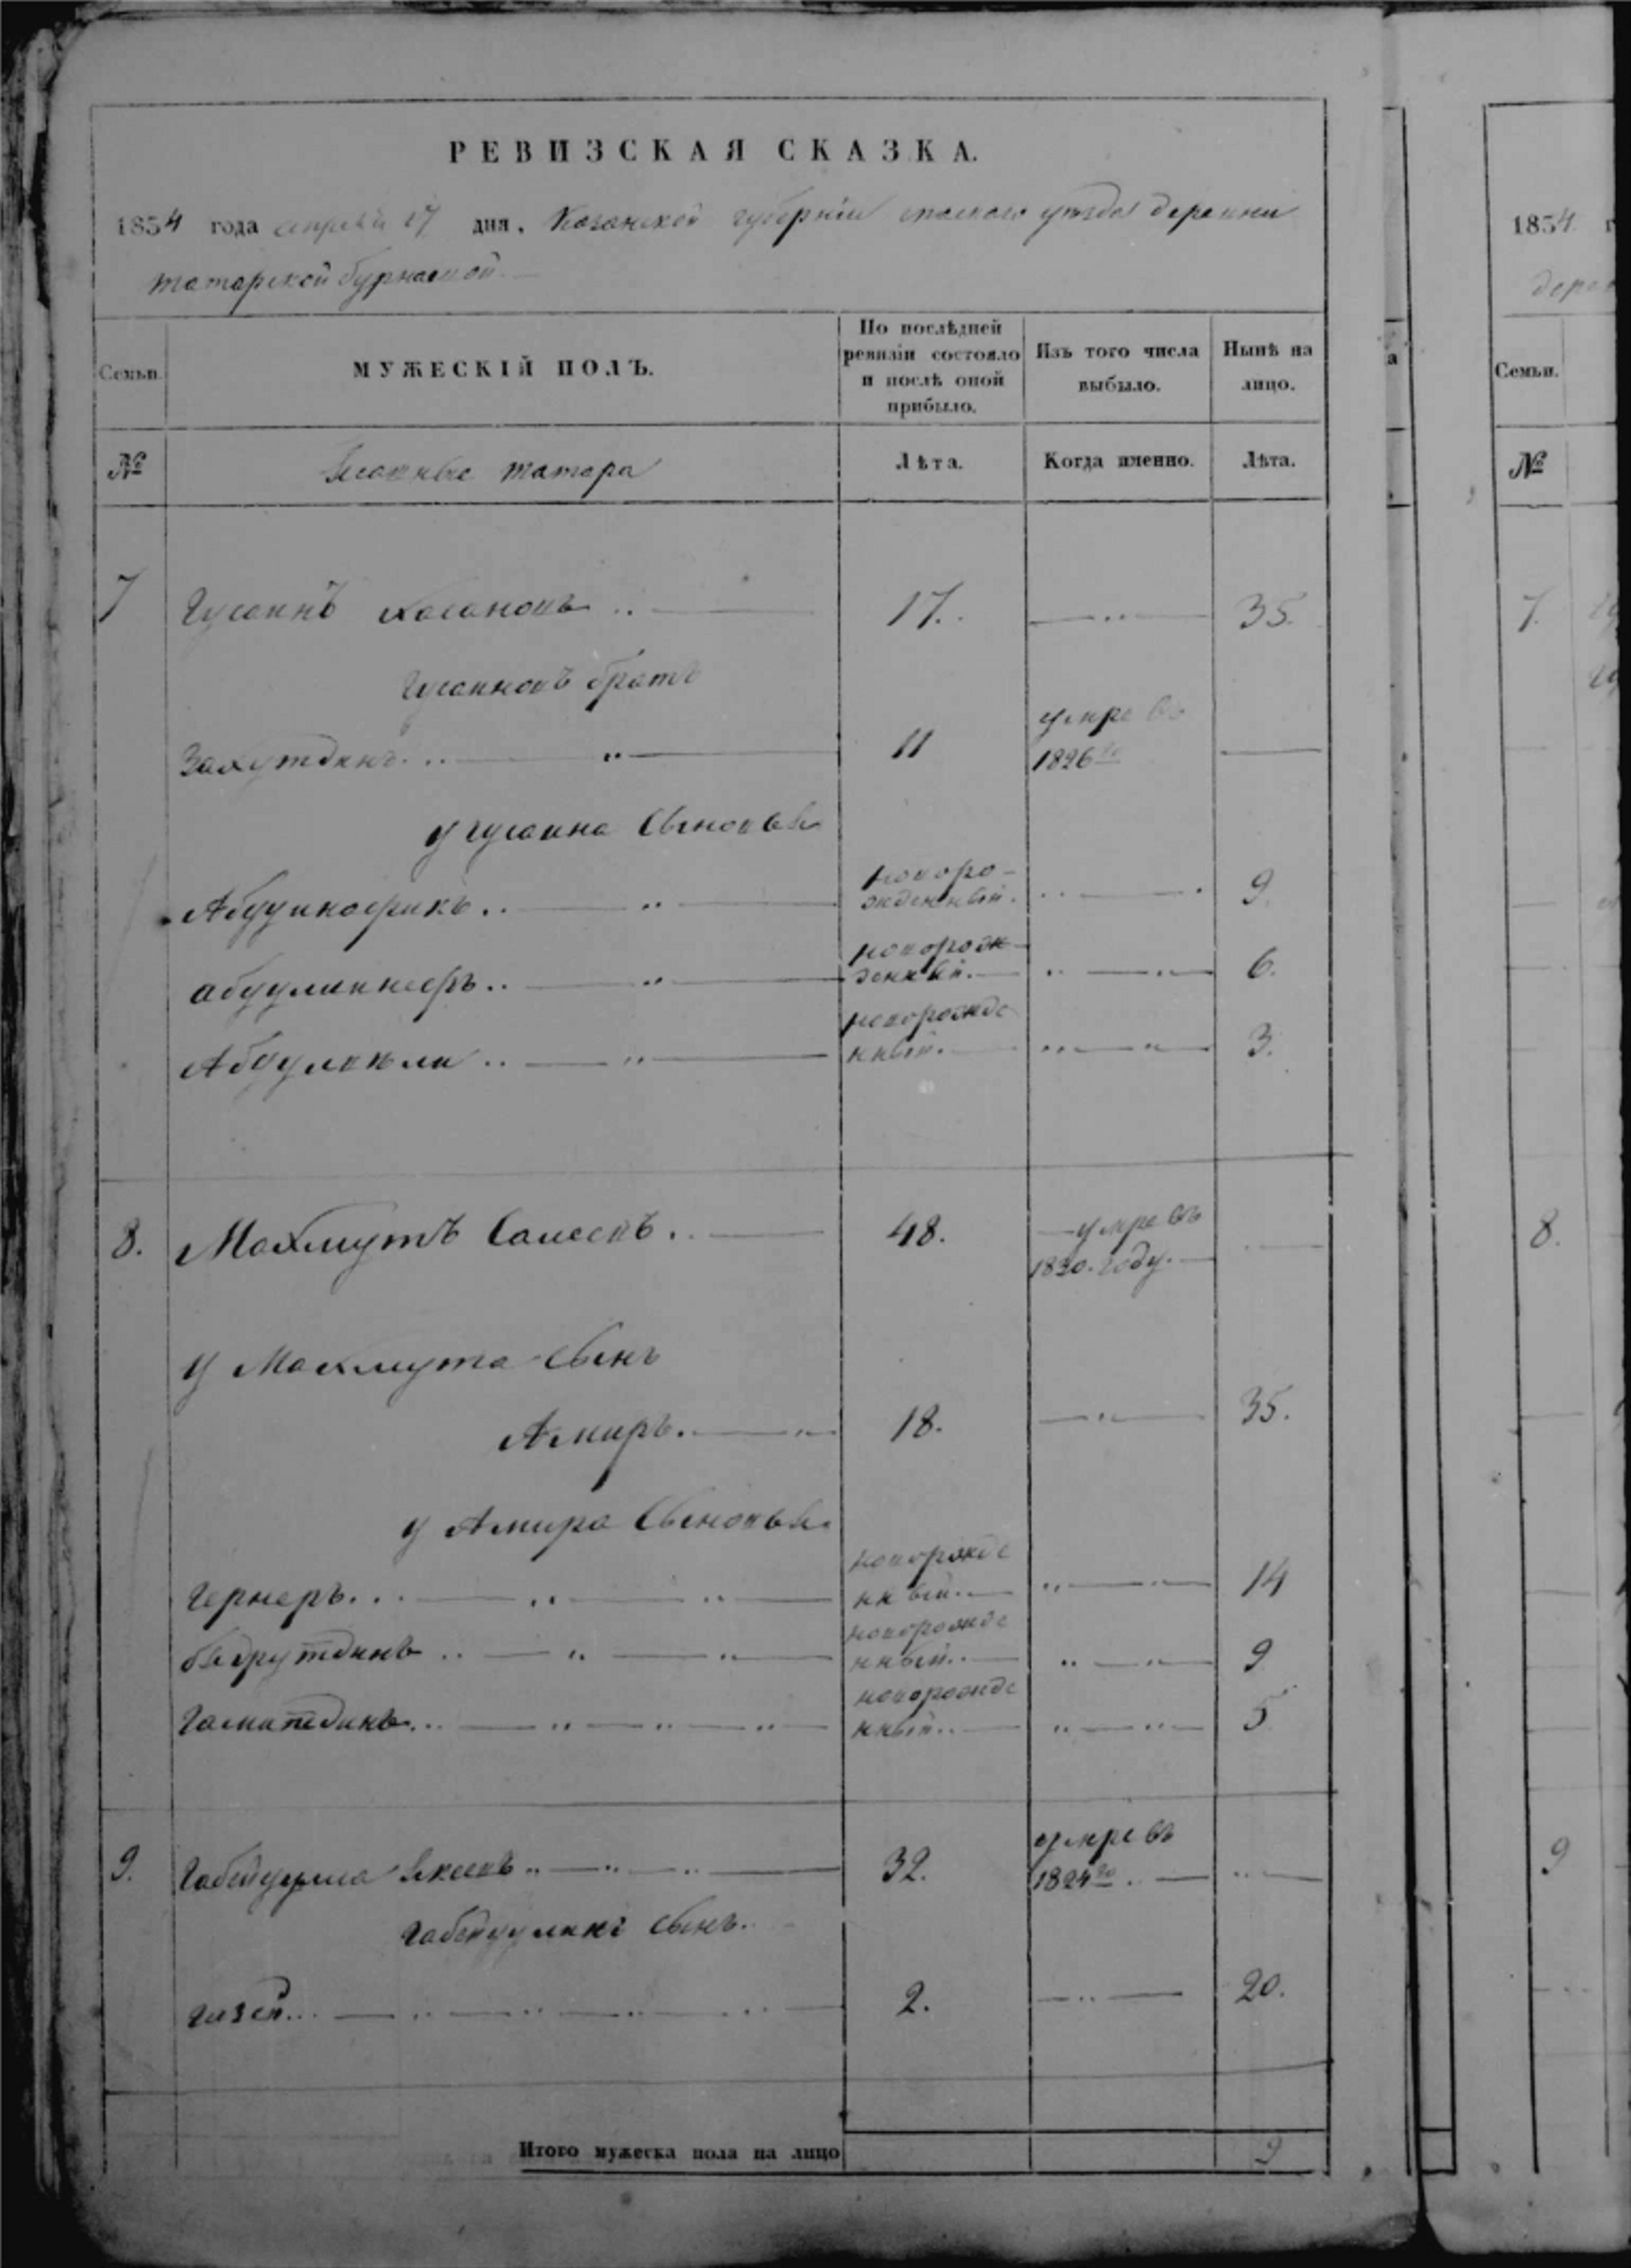 РЕВИЗСКАЯ СКАЗКА.
1854 года апреля 17 дня, Казанской губернiи спаского уезда деревни
татарской бурнаевой
Семьи. МУЖЕСКIЙ ПОЛЪ. По послѣдней ревизiи состояло и послѣ оной прибыло. Изъ того числа выбыло. Нынѣ на лицо.
№ Ясашные татара Лѣта. Когда именно. Лѣта.
7 Гусаинъ Хасановъ 17. 35.
Гусаиновъ братъ
Захутдинъ 11 умре въ 1826го
у гусаина Сыновья
новоро-
жденный. 9.
новорож-
денный. 6.
новорожде
нный. 3.
8. Махмутъ 48. умре въ
1830. году.
у Махмута Сынъ
Амиръ. 18. 35.
у Амира Сыновья
новорожде
нный. 14
бедрутдинъ новорожде
нный. 9
новорожде
нный. 5
9. Габейдулла 32. умре въ
1824го
Габейдулинъ Сынъ.
2. 20.
Итого мужеска пола на лицо 9
1854 г
дерев
Семьи.
№
7.
8.
9